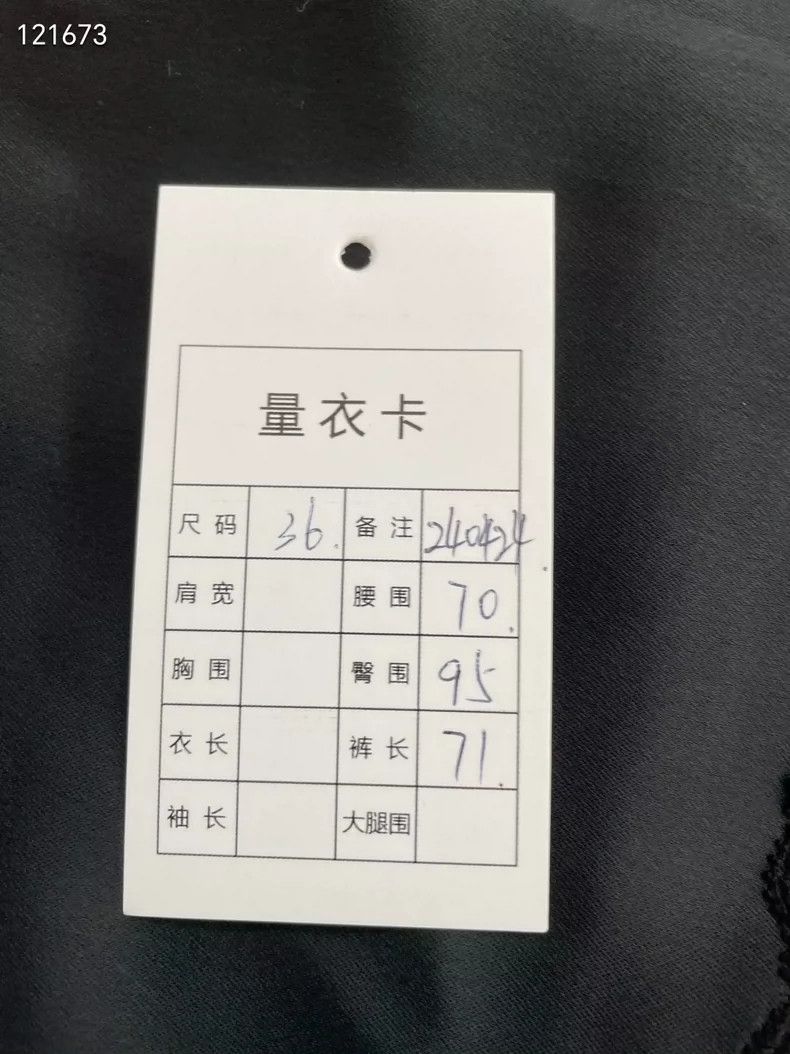 121673
量衣卡
尺码 36. 备注 240424.
肩宽 腰围 70.
胸围 臀围 95
衣长 裤长 71.
袖长 大腿围